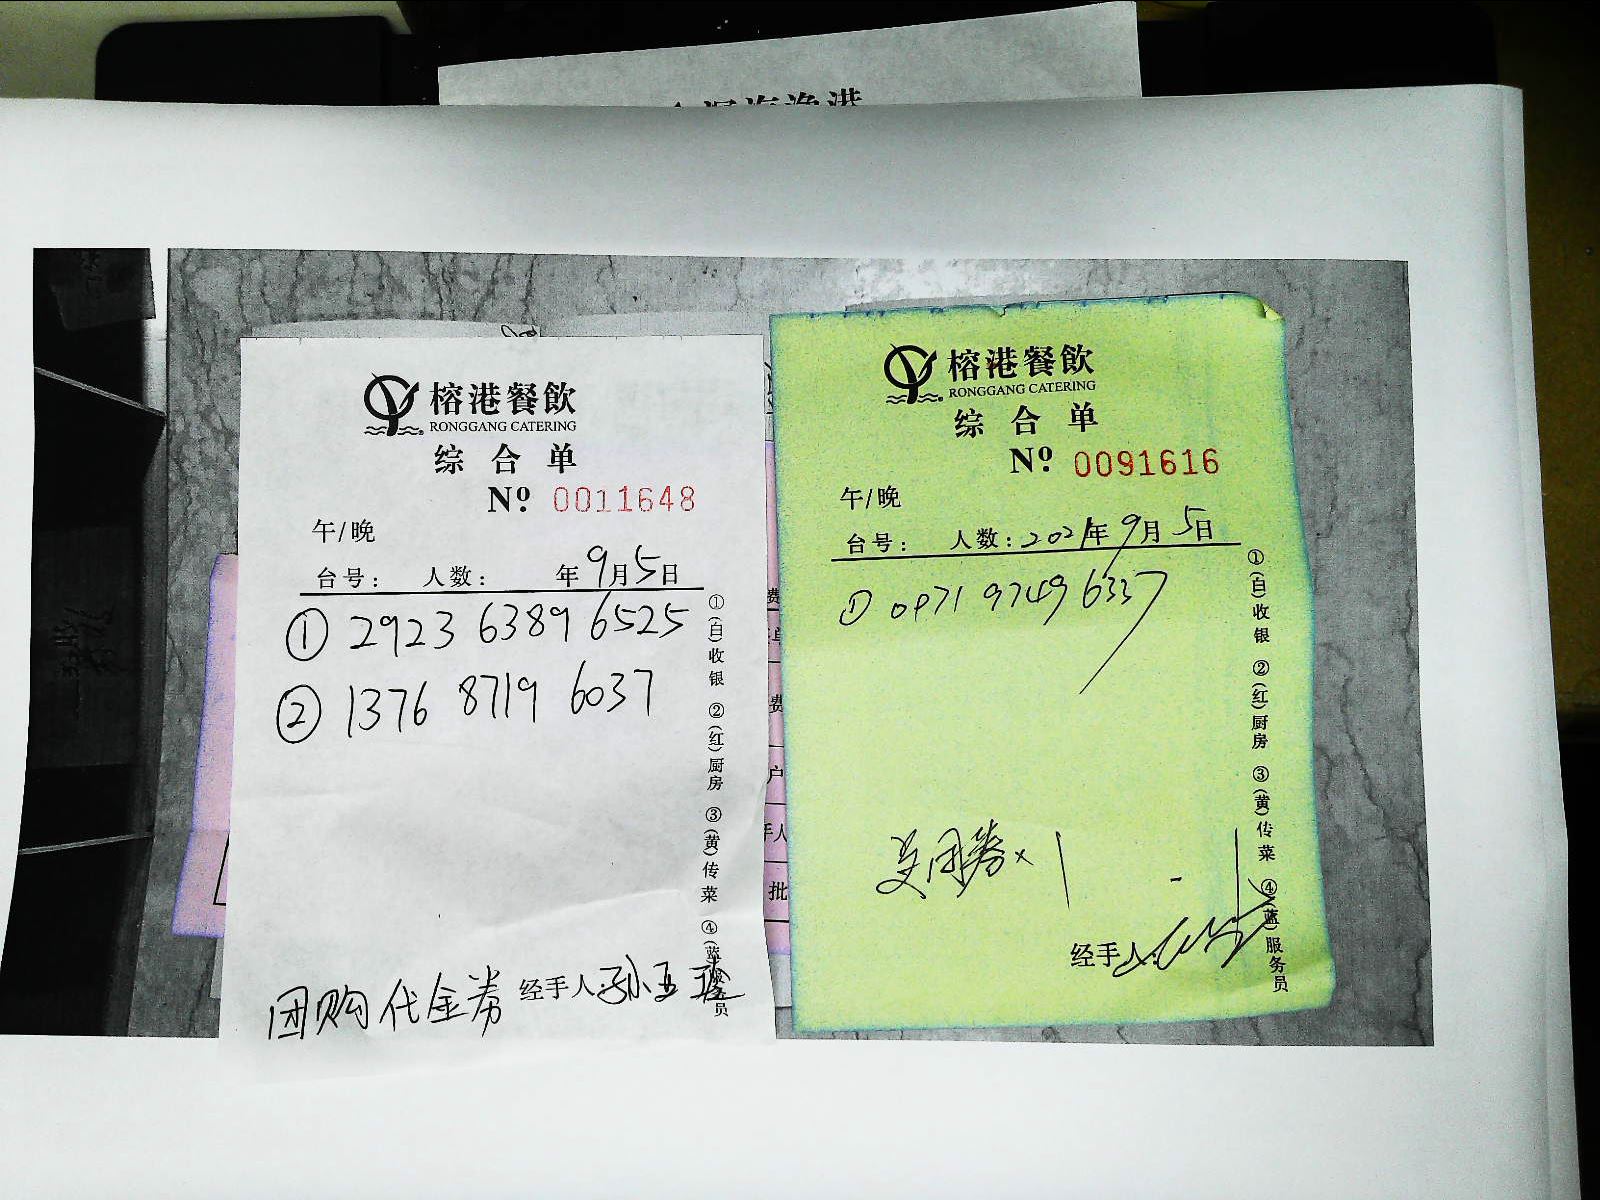 榕港餐飲
RONGGANG CATERING
综合单
Nº 0011648
午/晚
台号： 人数： 年9月5日
① 2923 6389 6525
② 1376 8719 6037
①(白)收银 ②(红)厨房 ③(黄)传菜 ④(蓝)服务员
团购代金券 经手人:孙
榕港餐飲
RONGGANG CATERING
综合单
Nº 0091616
午/晚
台号： 人数：2021年9月5日
① 0971 9749 6337
①(白)收银 ②(红)厨房 ③(黄)传菜 ④(蓝)服务员
美团券×1
经手人:
费
单
费
户
手人
批